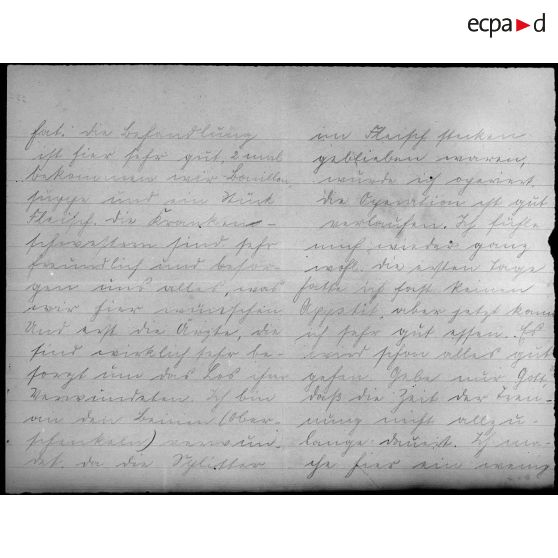 ecpa d
hat. die Behandlung
ist hier sehr gut. 2 mal
bekommen wir Bouillon
suppe und ein Stück
Fleisch. die Kranken-
schwestern sind sehr
freundlich und besor-
gen uns alles, was
wir hier wünschen
Und erst die Ärzte, die
sind wirklich sehr be-
sorgt um das Los ihrer
Verwundeten. Ich bin
an den Beinen (Ober-
schenkeln) verwun-
det. da die Splitter
im Fleisch stecken
geblieben waren,
wurde ich operiert.
die Operation ist gut
verlaufen. Ich fühle
mich wieder ganz
wohl. die ersten Tage
hatte ich fast keinen
Appetit, aber jetzt kann
ich sehr gut essen. Es
wird schon alles gut
gehen. Gebe nur Gott,
daß die Zeit der Tren-
nung nicht allzu-
lange dauert. Ich ma-
che hier ein wenig